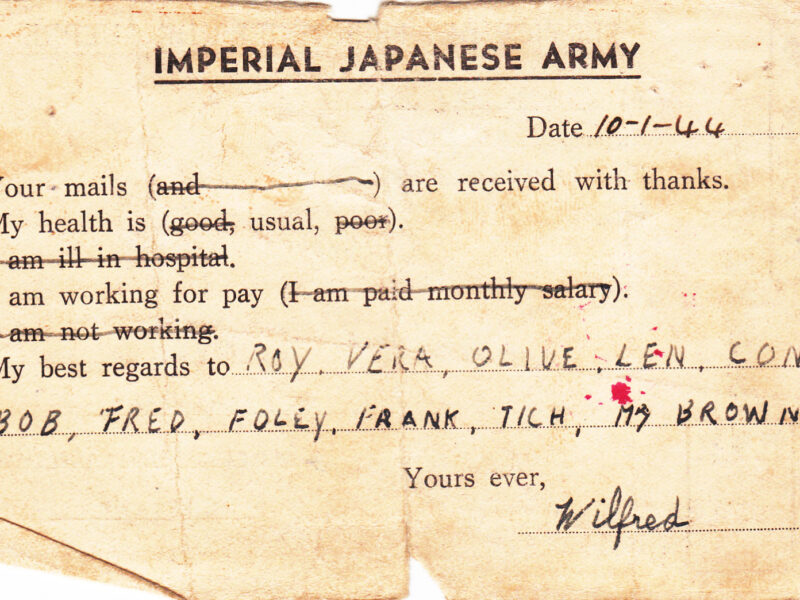 IMPERIAL JAPANESE ARMY
Date 10-1-44
Your mails (and ) are received with thanks.
My health is (good, usual, poor).
am ill in hospital.
am working for pay (I am paid monthly salary).
am not working.
My best regards to ROY, VERA, OLIVE, LEN, CON
BOB, FRED, FOLEY, FRANK, TICH, BROWN
Yours ever,
Wilfred